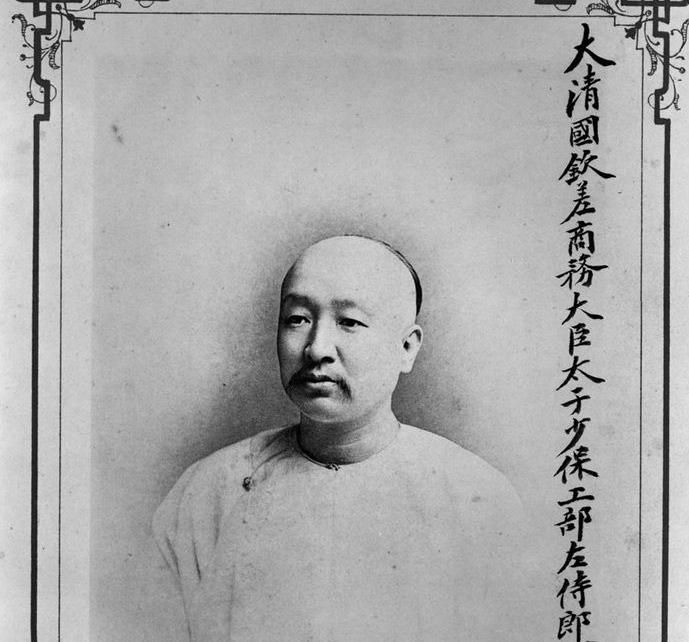 大清國欽差商務大臣太子少保工部左侍郎